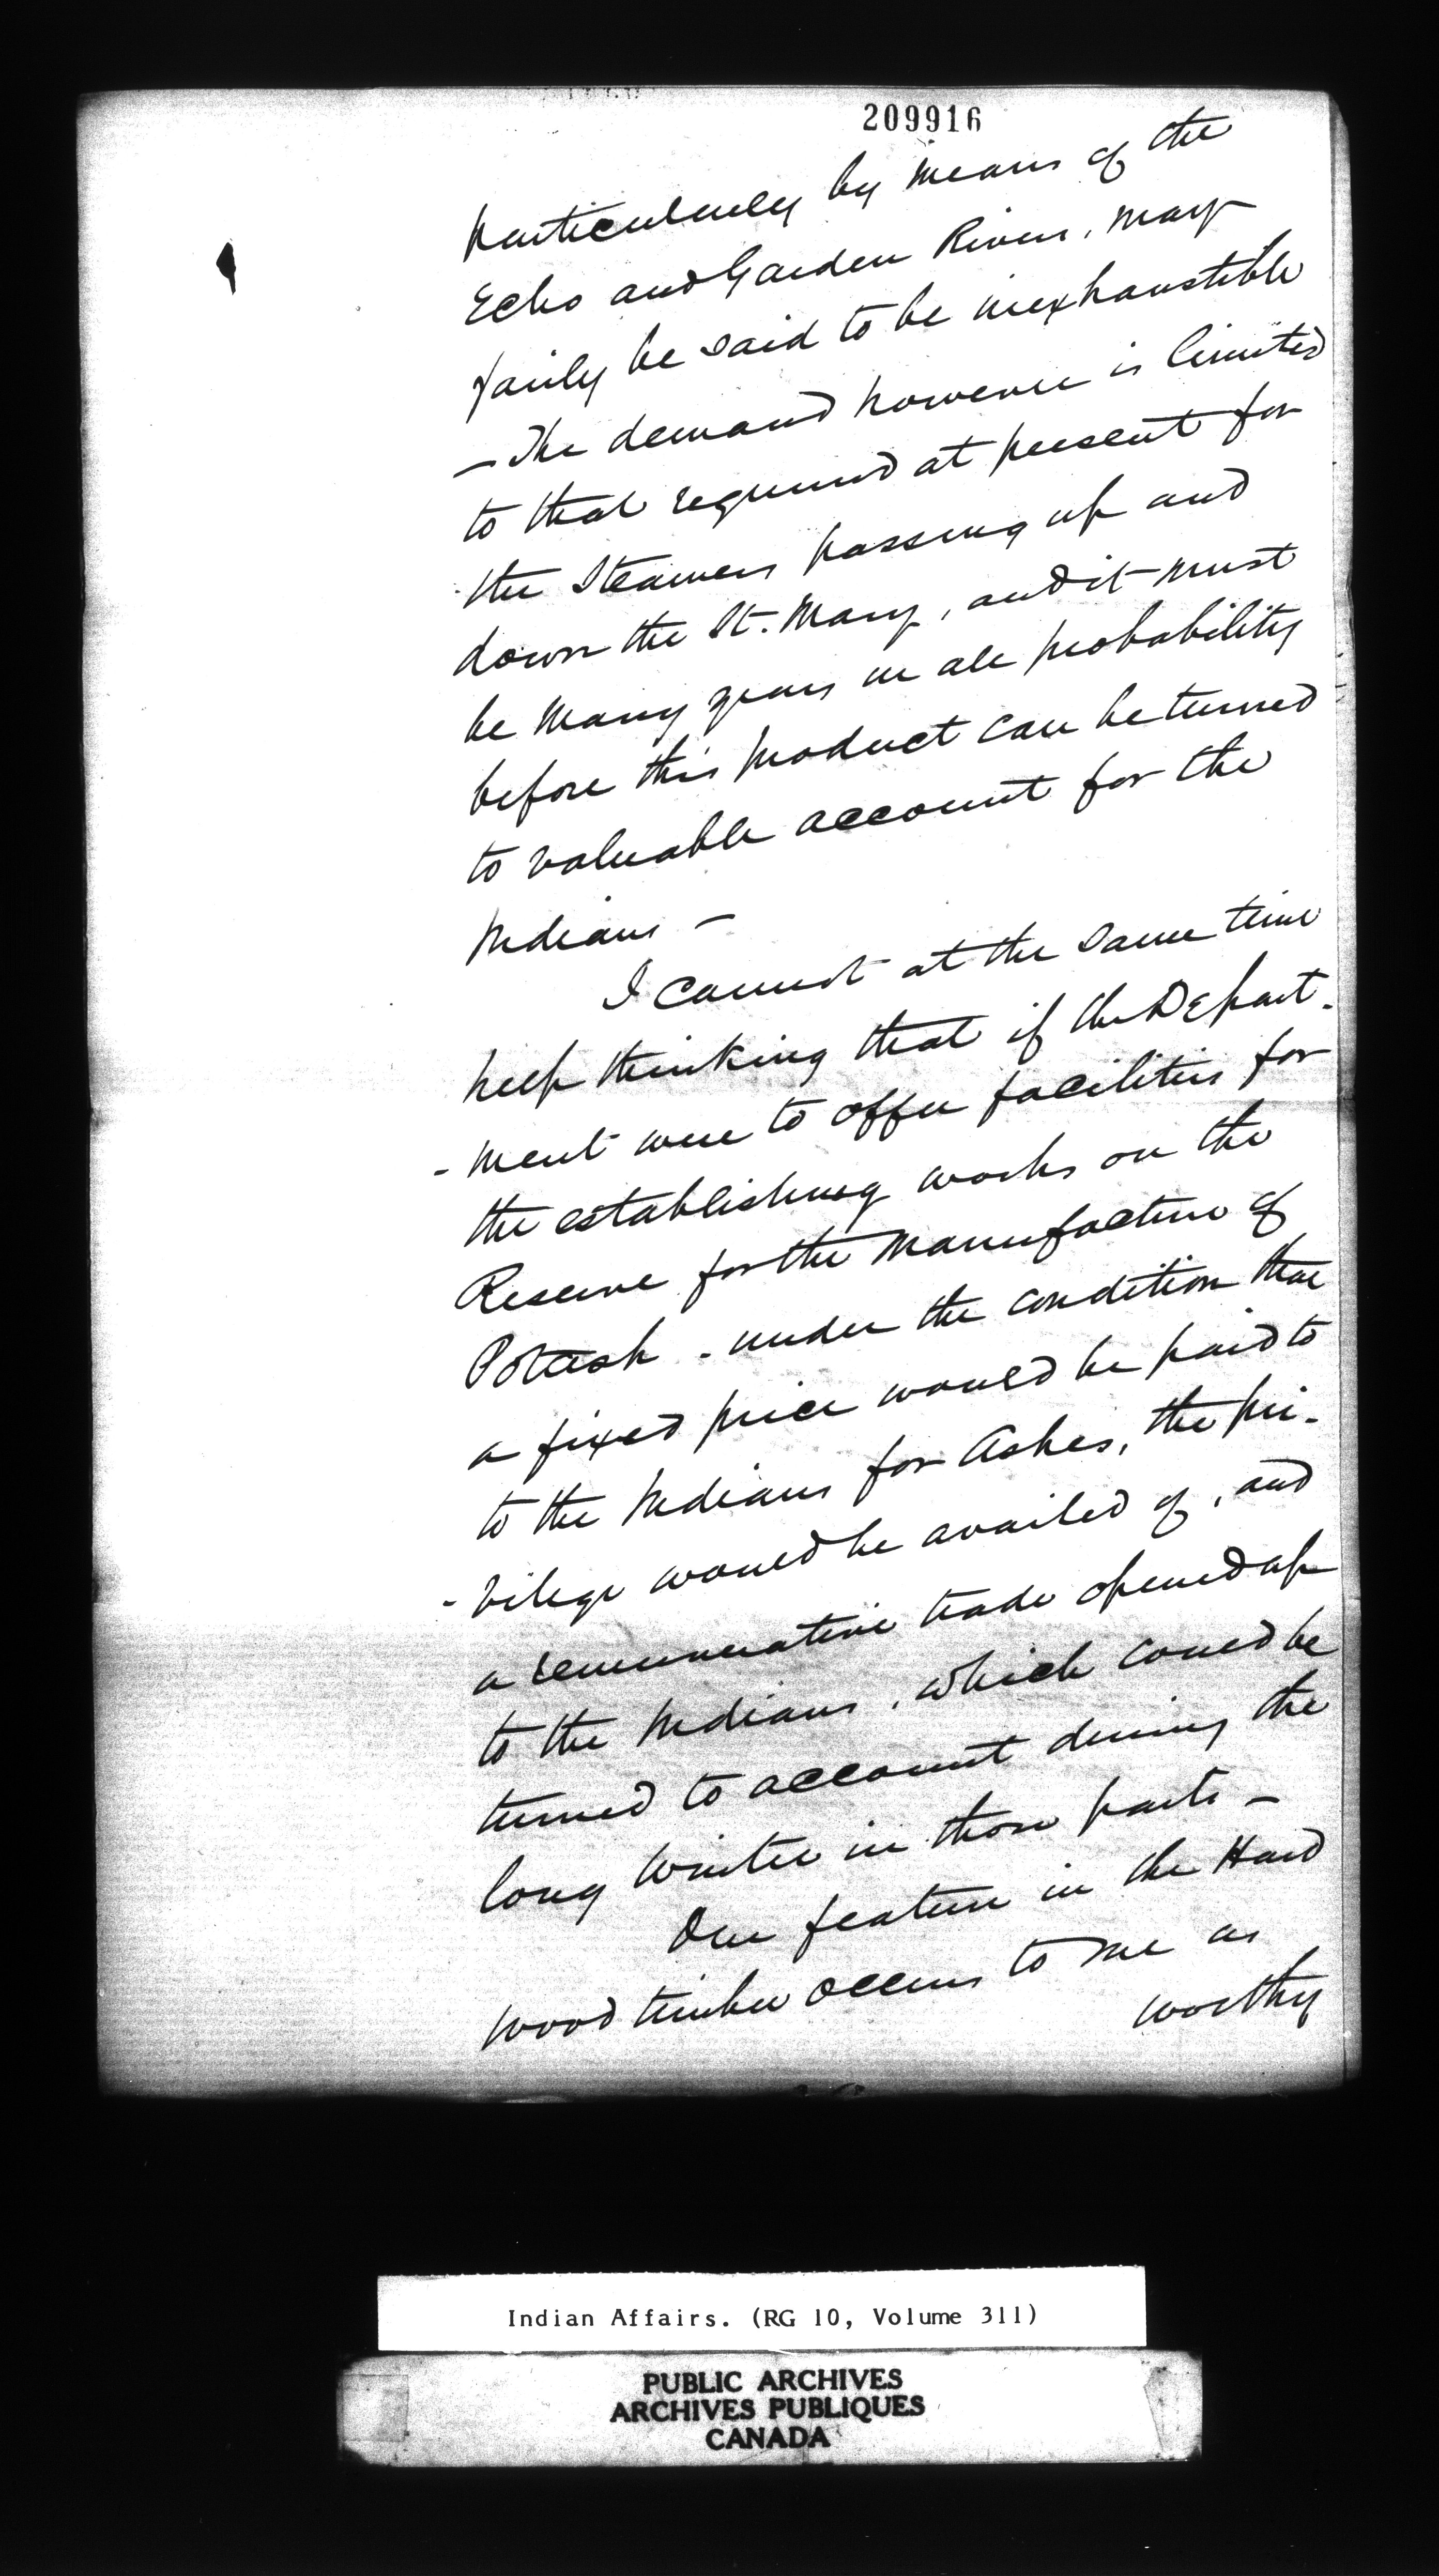 209916
particularly by means of the
Echo and Garden Rivers, may
fairly be said to be inexhaustible
– The demand however is limited
to that required at present for
the Steamers passing up and
down the St. Mary, and it must
be many years in all probability
before this product can be turned
to valuable account for the
Indians –
I cannot at the same time
help thinking that if the Depart-
-ment were to offer facilities for
the establishing works on the
Reserve for the manufacture of
Potash - under the condition that
a fixed price would be paid to
to the Indians for Ashes, the pri-
-vilege would be availed of, and
a remunerative trade opened up
to the Indians, which could be
turned to account during the
long winter in those parts –
One feature in the Hard
wood timber occurs to me as
worthy
Indian Affairs. (RG 10, Volume 311)
PUBLIC ARCHIVES
ARCHIVES PUBLIQUES
CANADA